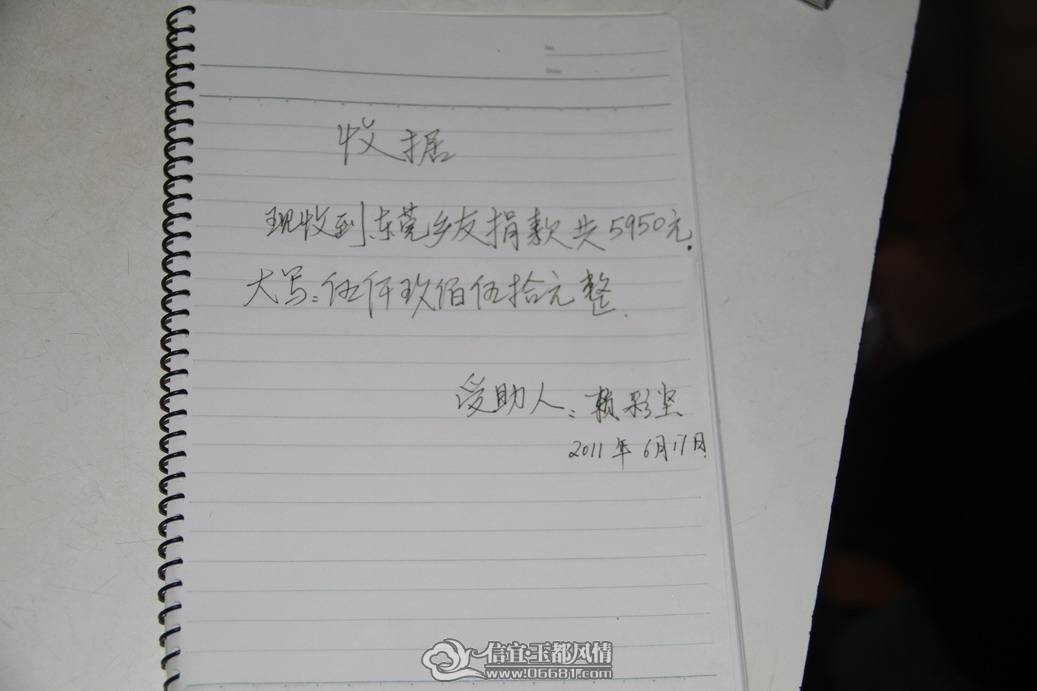 收据
现收到东莞乡友捐款共5950元.
大写:伍仟玖佰伍拾元整.
受助人:赖彩坚
2011年6月17日
信宜·玉都风情
www.06681.com